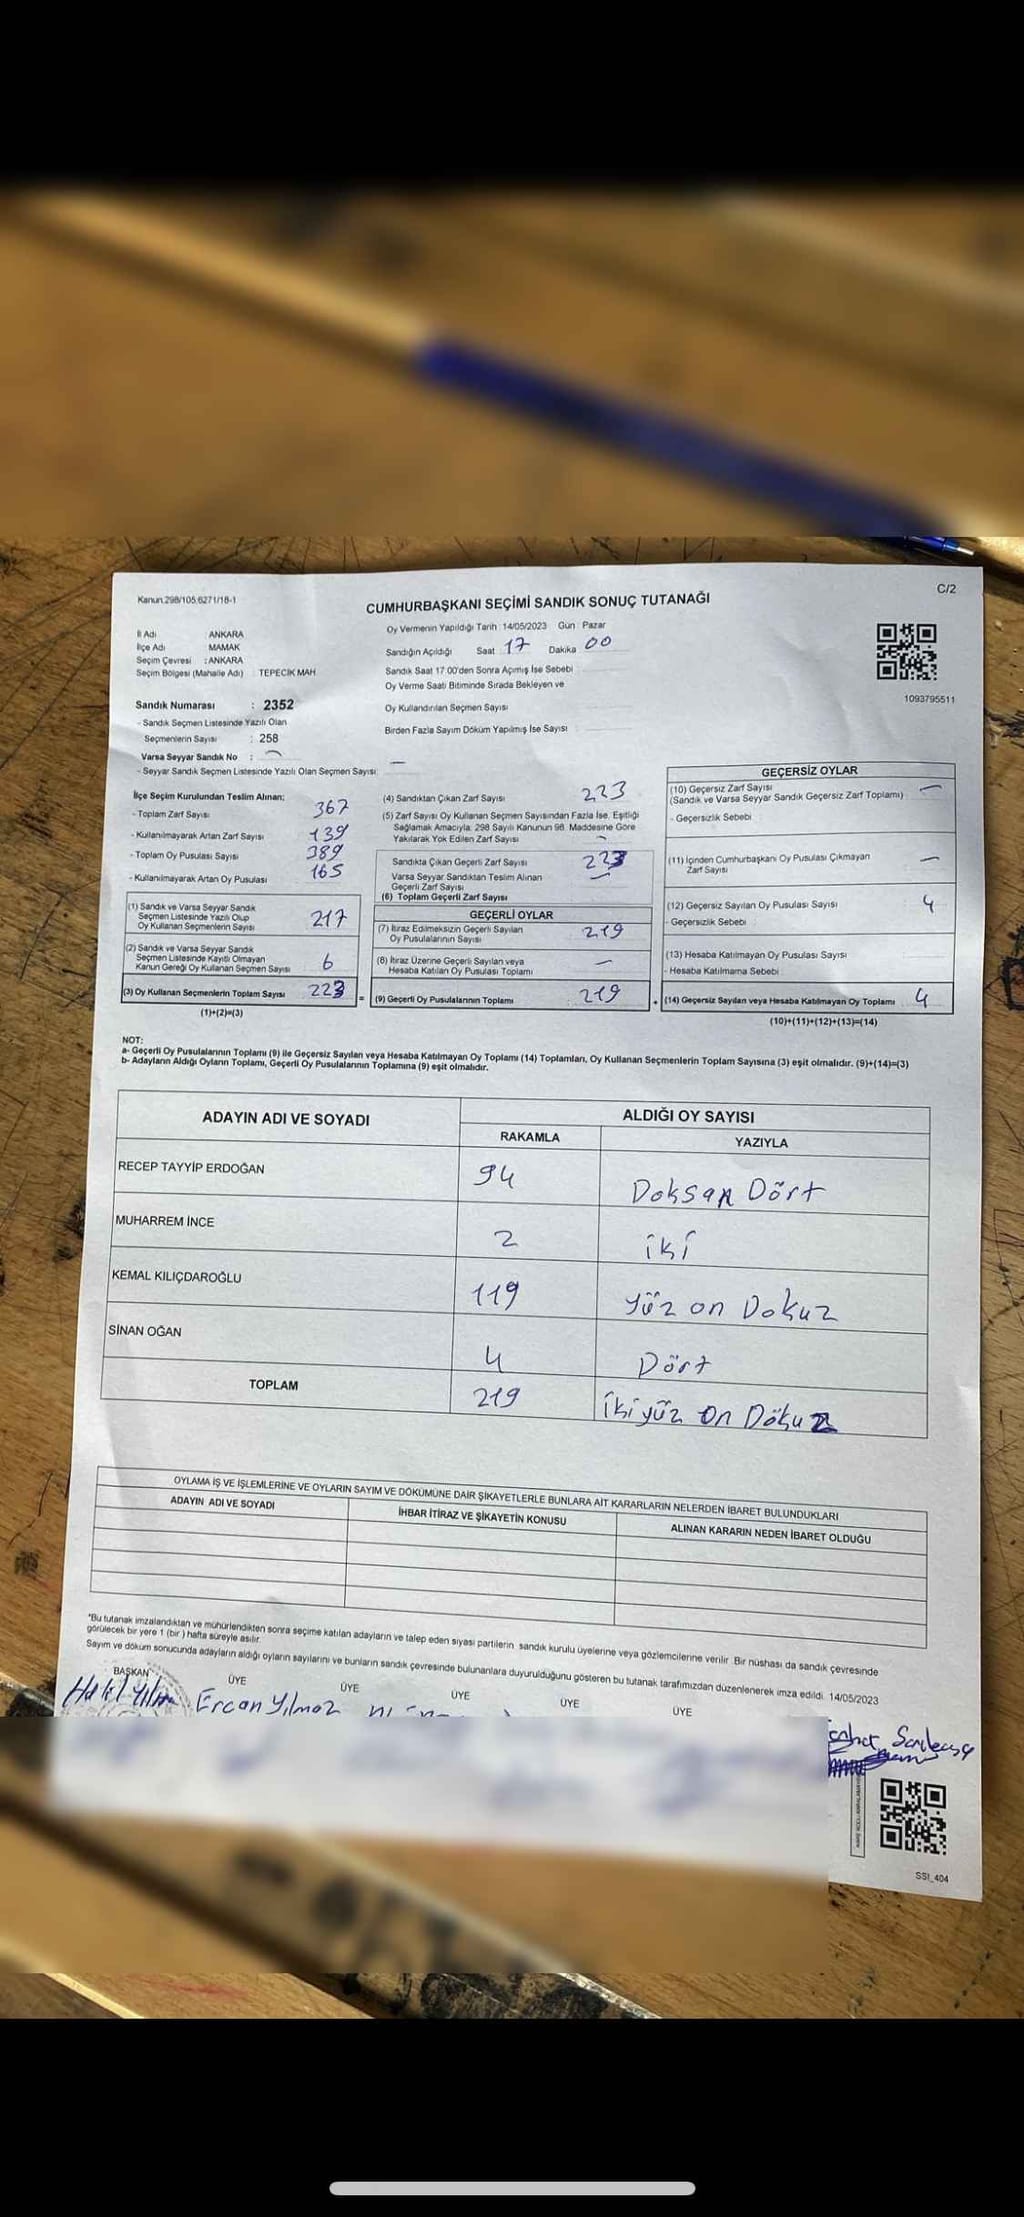 C/2
Kanun.298/105.6271/18-1
CUMHURBAŞKANI SEÇİMİ SANDIK SONUÇ TUTANAĞI
İl Adı ANKARA
İlçe Adı MAMAK
Seçim Çevresi : ANKARA
Seçim Bölgesi (Mahalle Adı) TEPECİK MAH
Oy Vermenin Yapıldığı Tarih :14/05/2023 Gün Pazar
Sandığın Açıldığı Saat 17 Dakika 00
Sandık Saat 17.00'den Sonra Açımış İse Sebebi
Oy Verme Saati Bitiminde Sırada Bekleyen ve
Oy Kullandırılan Seçmen Sayısı
Birden Fazla Sayım Döküm Yapılmış İse Sayısı
1093795511
Sandık Numarası : 2352
- Sandık Seçmen Listesinde Yazılı Olan
Seçmenlerin Sayısı : 258
Varsa Seyyar Sandık No : —
- Seyyar Sandık Seçmen Listesinde Yazılı Olan Seçmen Sayısı: —
İlçe Seçim Kurulundan Teslim Alınan;
- Toplam Zarf Sayısı 367
- Kullanılmayarak Artan Zarf Sayısı 139
- Toplam Oy Pusulası Sayısı 389
- Kullanılmayarak Artan Oy Pusulası 165
(1) Sandık ve Varsa Seyyar Sandık
Seçmen Listesinde Yazılı Olup
Oy Kullanan Seçmenlerin Sayısı 217
(2) Sandık ve Varsa Seyyar Sandık
Seçmen Listesinde Kayıtlı Olmayan
Kanun Gereği Oy Kullanan Seçmen Sayısı 6
(3) Oy Kullanan Seçmenlerin Toplam Sayısı 223
(1)+(2)=(3)
(4) Sandıktan Çıkan Zarf Sayısı 223
(5) Zarf Sayısı Oy Kullanan Seçmen Sayısından Fazla İse, Eşitliği
Sağlamak Amacıyla; 298 Sayılı Kanunun 98. Maddesine Göre
Yakılarak Yok Edilen Zarf Sayısı —
Sandıkta Çıkan Geçerli Zarf Sayısı 223
Varsa Seyyar Sandıktan Teslim Alınan
Geçerli Zarf Sayısı —
(6) Toplam Geçerli Zarf Sayısı
GEÇERLİ OYLAR
(7) İtiraz Edilmeksizin Geçerli Sayılan
Oy Pusulalarının Sayısı 219
(8) İtiraz Üzerine Geçerli Sayılan veya
Hesaba Katılan Oy Pusulası Toplamı —
= (9) Geçerli Oy Pusulalarının Toplamı 219
GEÇERSİZ OYLAR
(10) Geçersiz Zarf Sayısı —
(Sandık ve Varsa Seyyar Sandık Geçersiz Zarf Toplamı)
- Geçersizlik Sebebi
(11) İçinden Cumhurbaşkanı Oy Pusulası Çıkmayan
Zarf Sayısı —
(12) Geçersiz Sayılan Oy Pusulası Sayısı 4
- Geçersizlik Sebebi
(13) Hesaba Katılmayan Oy Pusulası Sayısı
- Hesaba Katılmama Sebebi
+ (14) Geçersiz Sayılan veya Hesaba Katılmayan Oy Toplamı 4
(10)+(11)+(12)+(13)=(14)
NOT:
a- Geçerli Oy Pusulalarının Toplamı (9) ile Geçersiz Sayılan veya Hesaba Katılmayan Oy Toplamı (14) Toplamları, Oy Kullanan Seçmenlerin Toplam Sayısına (3) eşit olmalıdır. (9)+(14)=(3)
b- Adayların Aldığı Oyların Toplamı, Geçerli Oy Pusulalarının Toplamına (9) eşit olmalıdır.
ADAYIN ADI VE SOYADI ALDIĞI OY SAYISI
RAKAMLA YAZIYLA
RECEP TAYYİP ERDOĞAN 94 Doksan Dört
MUHARREM İNCE 2 iki
KEMAL KILIÇDAROĞLU 119 yüz on Dokuz
SİNAN OĞAN 4 Dört
TOPLAM 219 ikiyüz on Dökuz
OYLAMA İŞ VE İŞLEMLERİNE VE OYLARIN SAYIM VE DÖKÜMÜNE DAİR ŞİKAYETLERLE BUNLARA AİT KARARLARIN NELERDEN İBARET BULUNDUKLARI
ADAYIN ADI VE SOYADI İHBAR İTİRAZ VE ŞİKAYETİN KONUSU ALINAN KARARIN NEDEN İBARET OLDUĞU
*Bu tutanak imzalandıktan ve mühürlendikten sonra seçime katılan adayların ve talep eden siyasi partilerin sandık kurulu üyelerine veya gözlemcilerine verilir. Bir nüshası da sandık çevresinde
görülecek bir yere 1 (bir ) hafta süreyle asılır.
Sayım ve döküm sonucunda adayların aldığı oyların sayılarını ve bunların sandık çevresinde bulunanlara duyurulduğunu gösteren bu tutanak tarafımızdan düzenlenerek imza edildi. 14/05/2023
BAŞKAN ÜYE ÜYE ÜYE ÜYE ÜYE
Halil Yılmaz Ercan Yılmaz
SSI_404